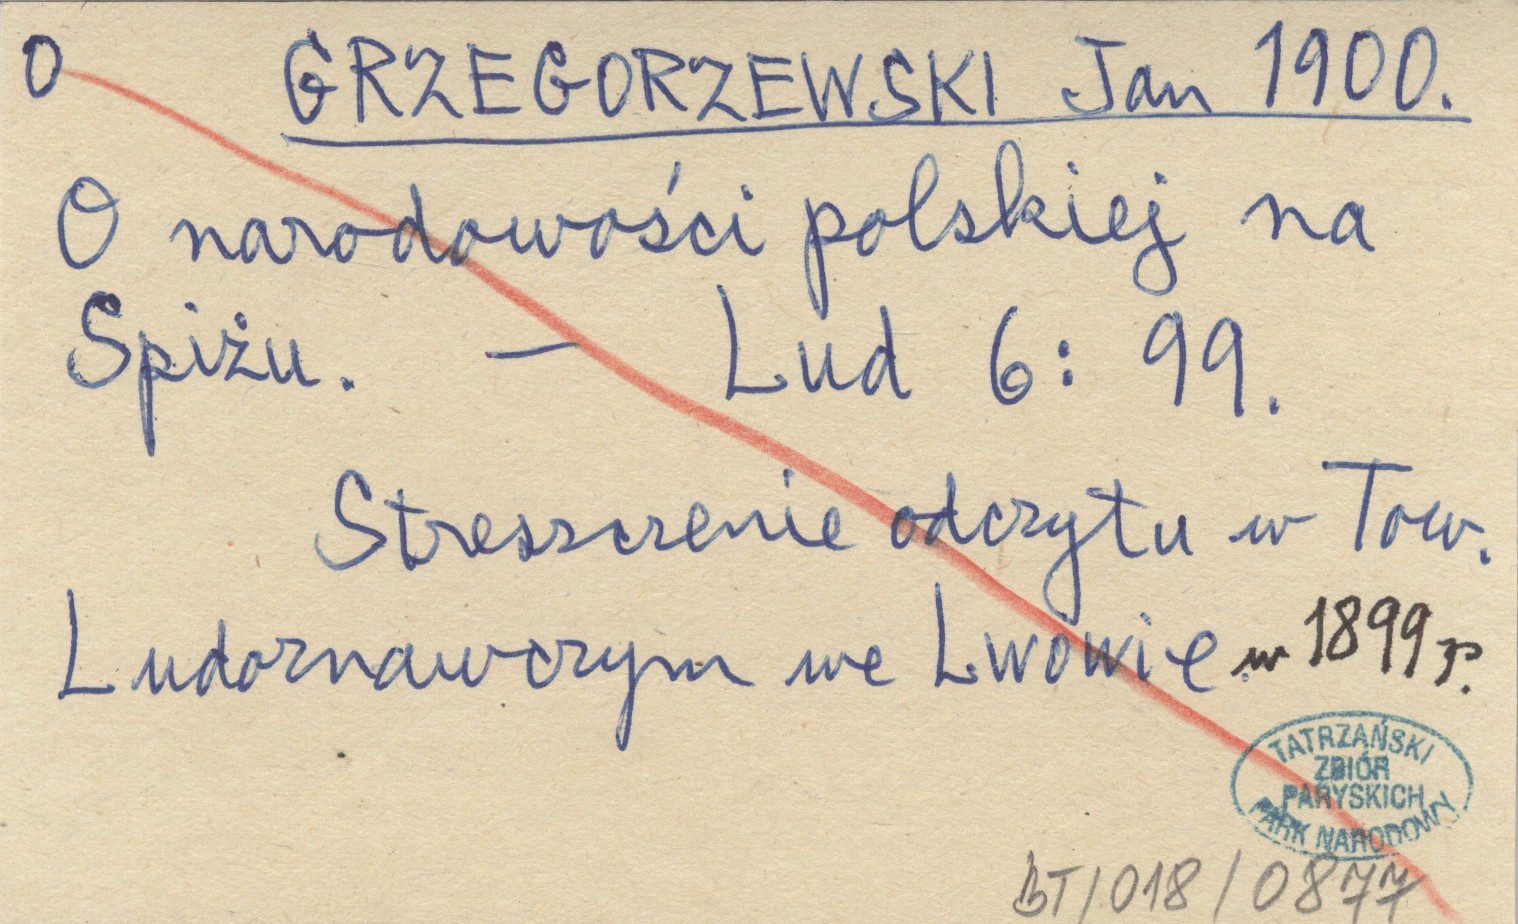 O GRZEGORZEWSKI Jan 1900.
O narodowości polskiej na
Spiżu. — Lud 6: 99.
Streszczenie odczytu w Tow.
Ludoznawczym we Lwowie w 1899 r.
TATRZAŃSKI
ZBIÓR
PARYSKICH
PARK NARODOWY
BT/018/0877